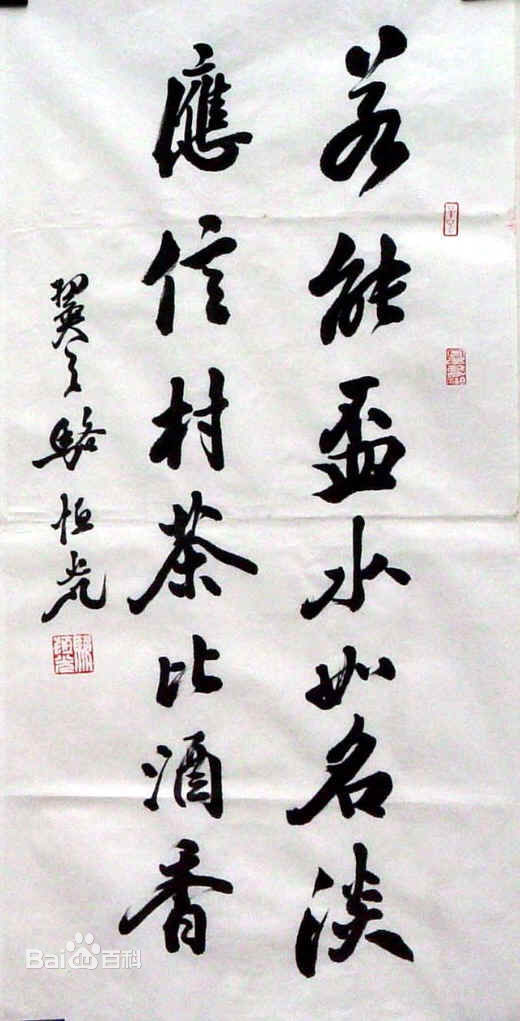 若能盃水如名淡
應信村茶比酒香
翼之駱恒光
Bai百科